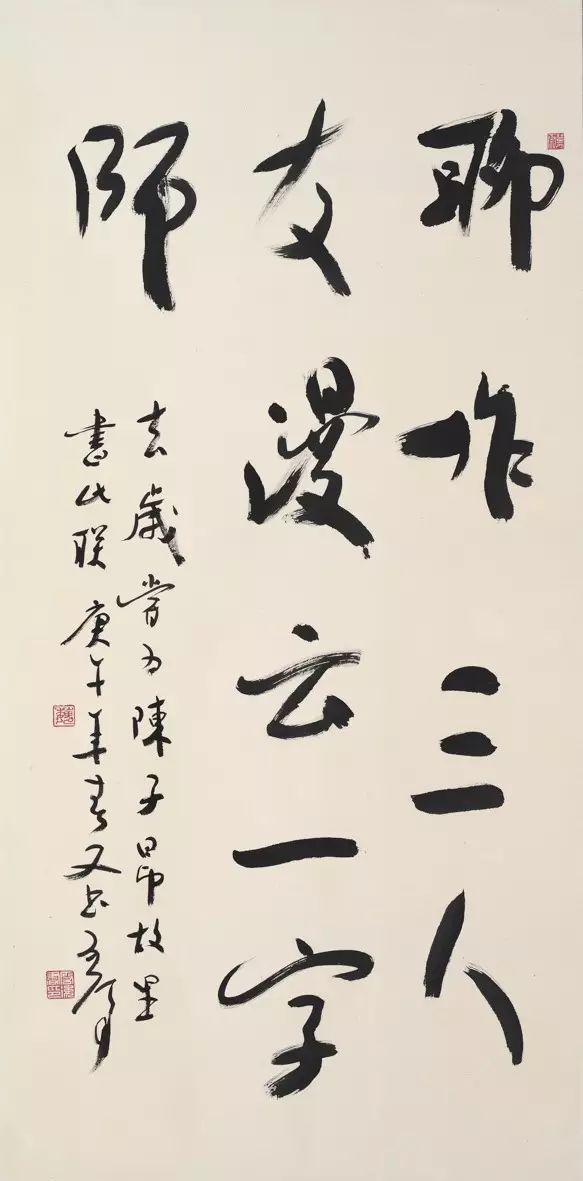 聊作三人
友漫云一字
師
去歲嘗为陳子昂故里
書此联庚午年春又书